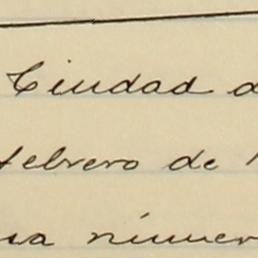 Ciudad d
febrero de 1
sa númer